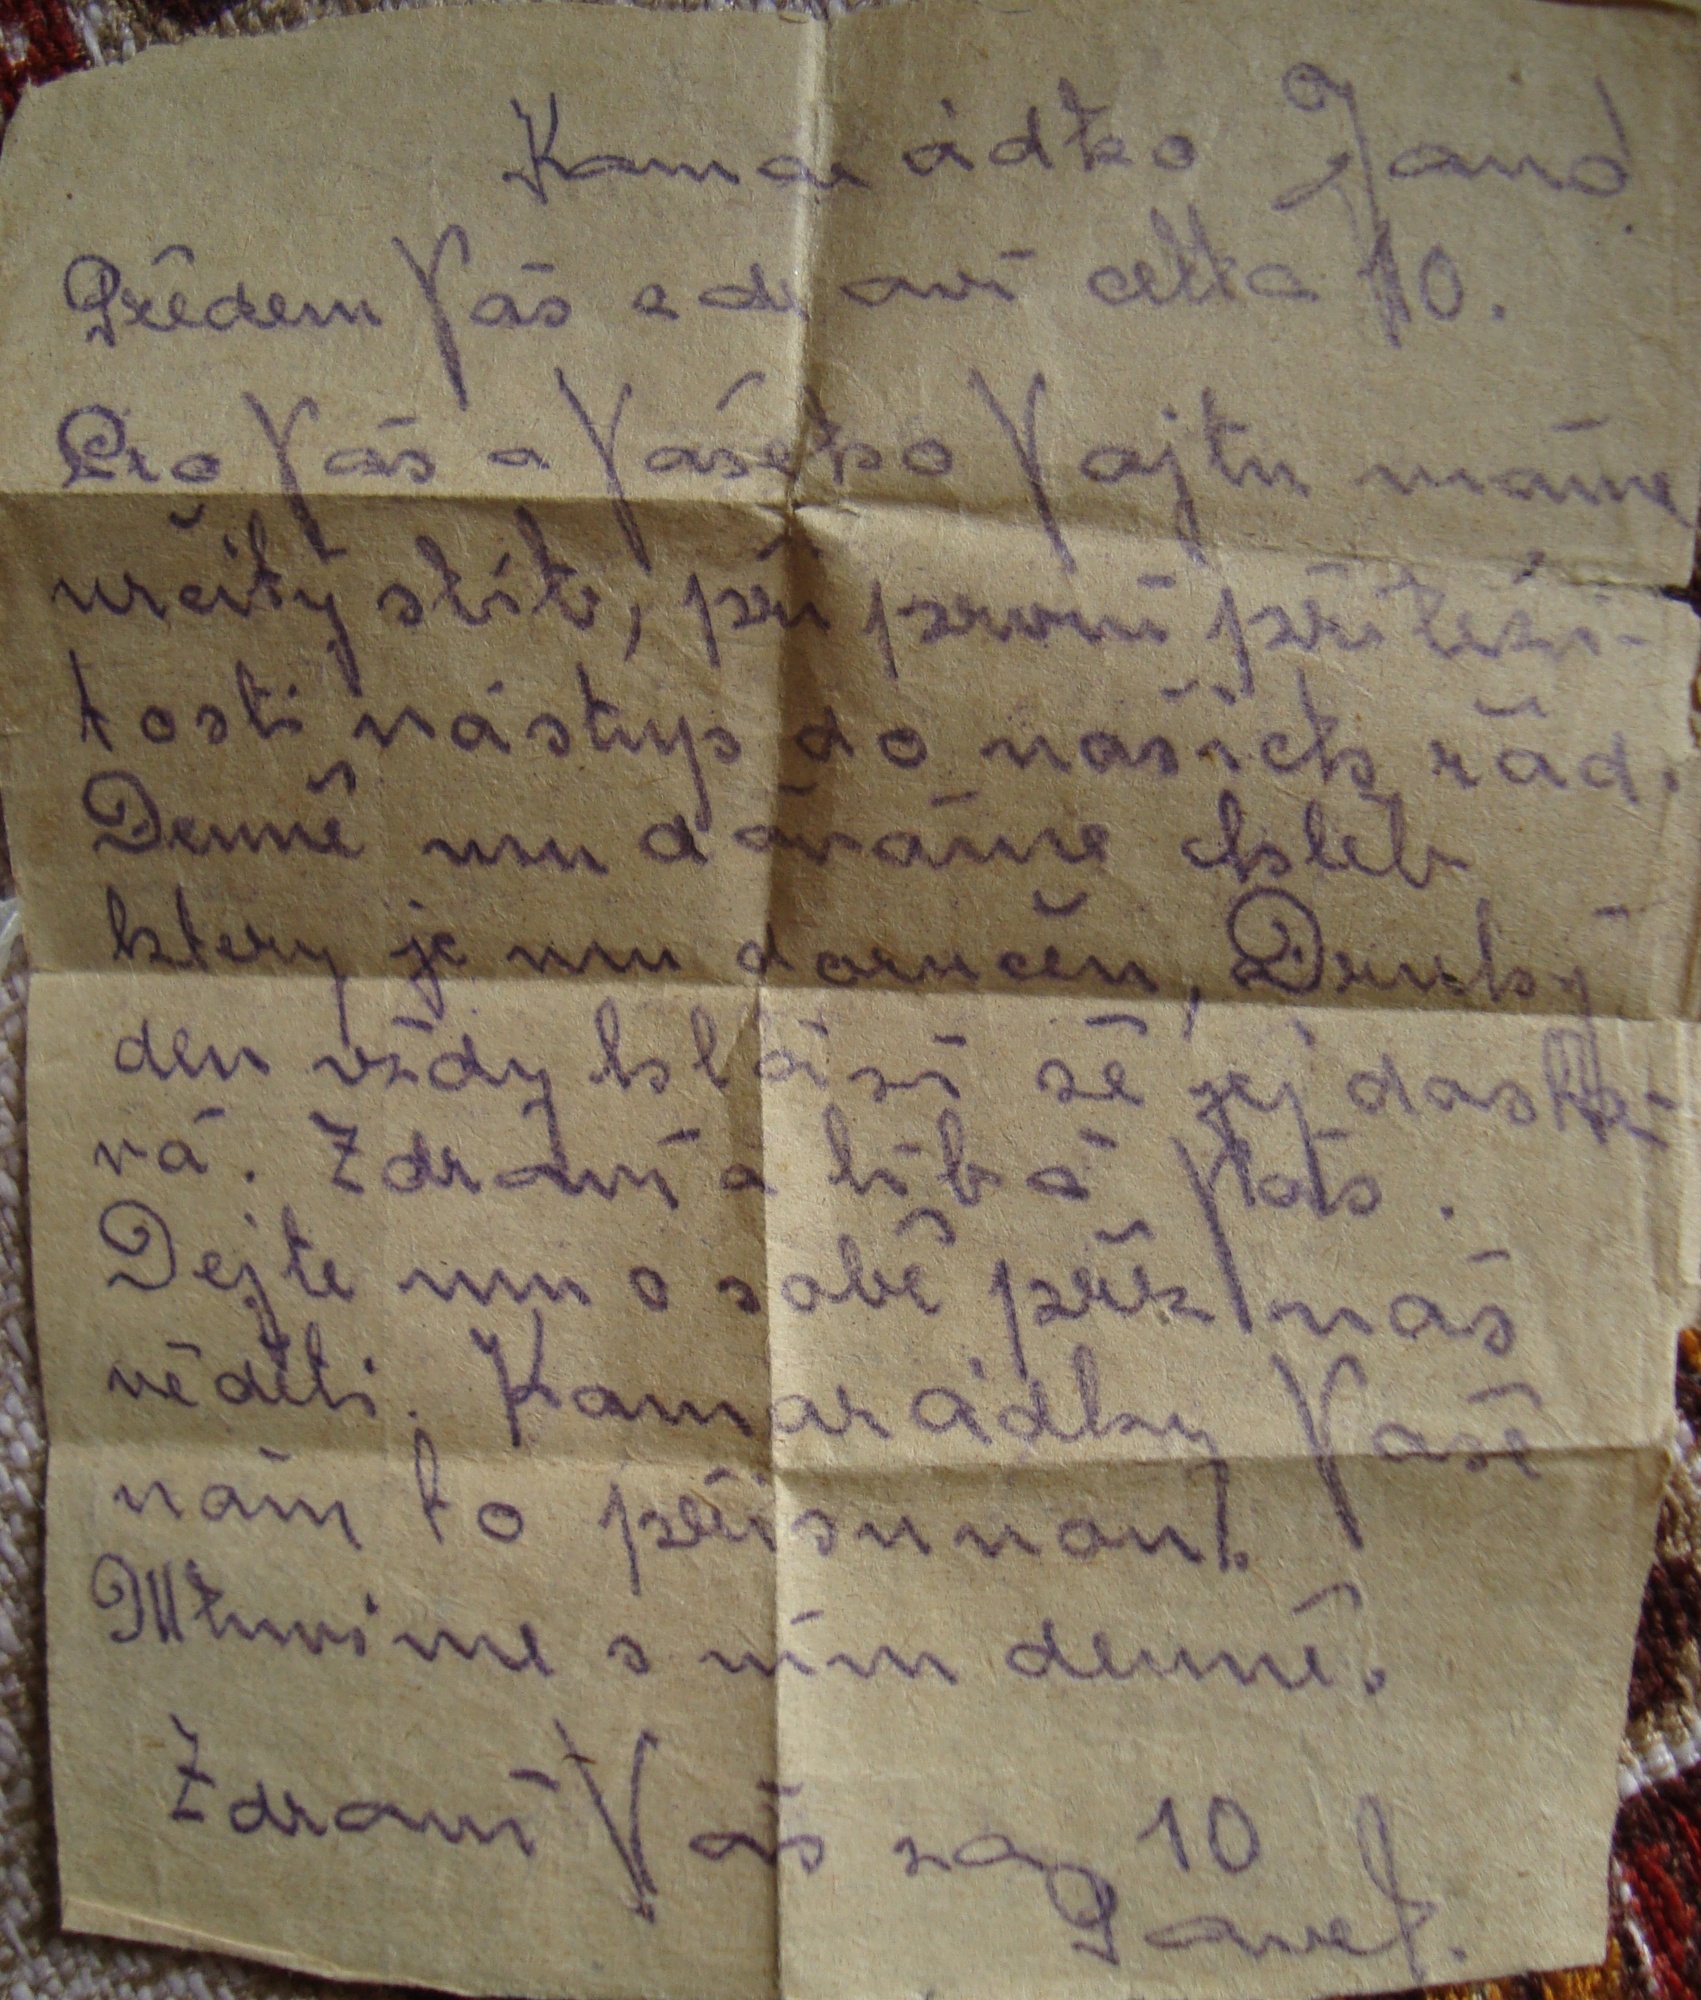 Kamarádko Jano!
Předem Vás zdraví cella 10.
Pro Vás a Vašeho Vojtu máme
určitý slib, při první příleži-
tosti nástup do našich řad.
Denně mu dáváme chléb
který je mu doručen, Druhý
den vždy hlásí že jej dostá-
vá. Zdraví a líbá Vás.
Dejte mu o sobě přez nás
věděti. Kamarádky Vaše
nám to přisunou.
Mluvíme s ním denně.
Zdraví Vás za 10
Pavel.